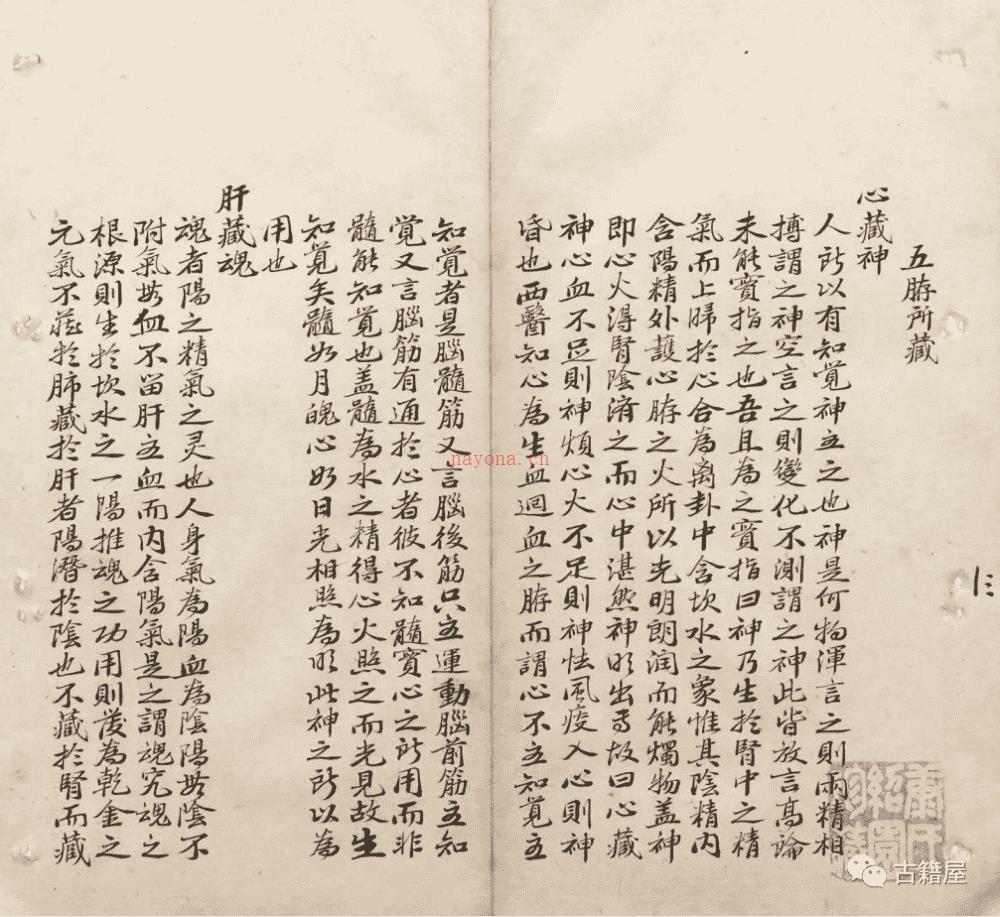 五脏所藏
心藏神
人所以有知覚神主之也神是何物渾言之則兩精相
搏謂之神空言之則變化不測謂之神此皆放言髙論
未能實指之也吾且為之實指曰神乃生於腎中之精
氣而上歸於心合為离卦中含坎水之象惟其陰精内
含陽精外護心脏之火所以光明朗润而能燭物盖神
即心火得腎陰濟之而心中湛然神明出焉故曰心藏
神心血不足則神煩心火不足則神怯风痰入心則神
昏也西醫知心為生血廻血之脏而謂心不主知覚主
知覚者是腦髓筋又言腦後筋只主運動腦前筋主知
覚又言腦筋有通於心者彼不知髓實心之所用而非
髓能知覚也盖髓為水之精得心火照之而光見故生
知覚矣髓如月魄心如日光相照為明此神之所以為
用也
肝藏魂
魂者陽之精氣之灵也人身氣為陽血為陰陽無陰不
附氣無血不留肝主血而内含陽氣是之謂魂究魂之
根源則生於坎水之一陽推魂之功用則發為乾金之
元氣不藏於肺藏於肝者陽潛於陰也不藏於腎而藏
古籍屋
nayona.cn